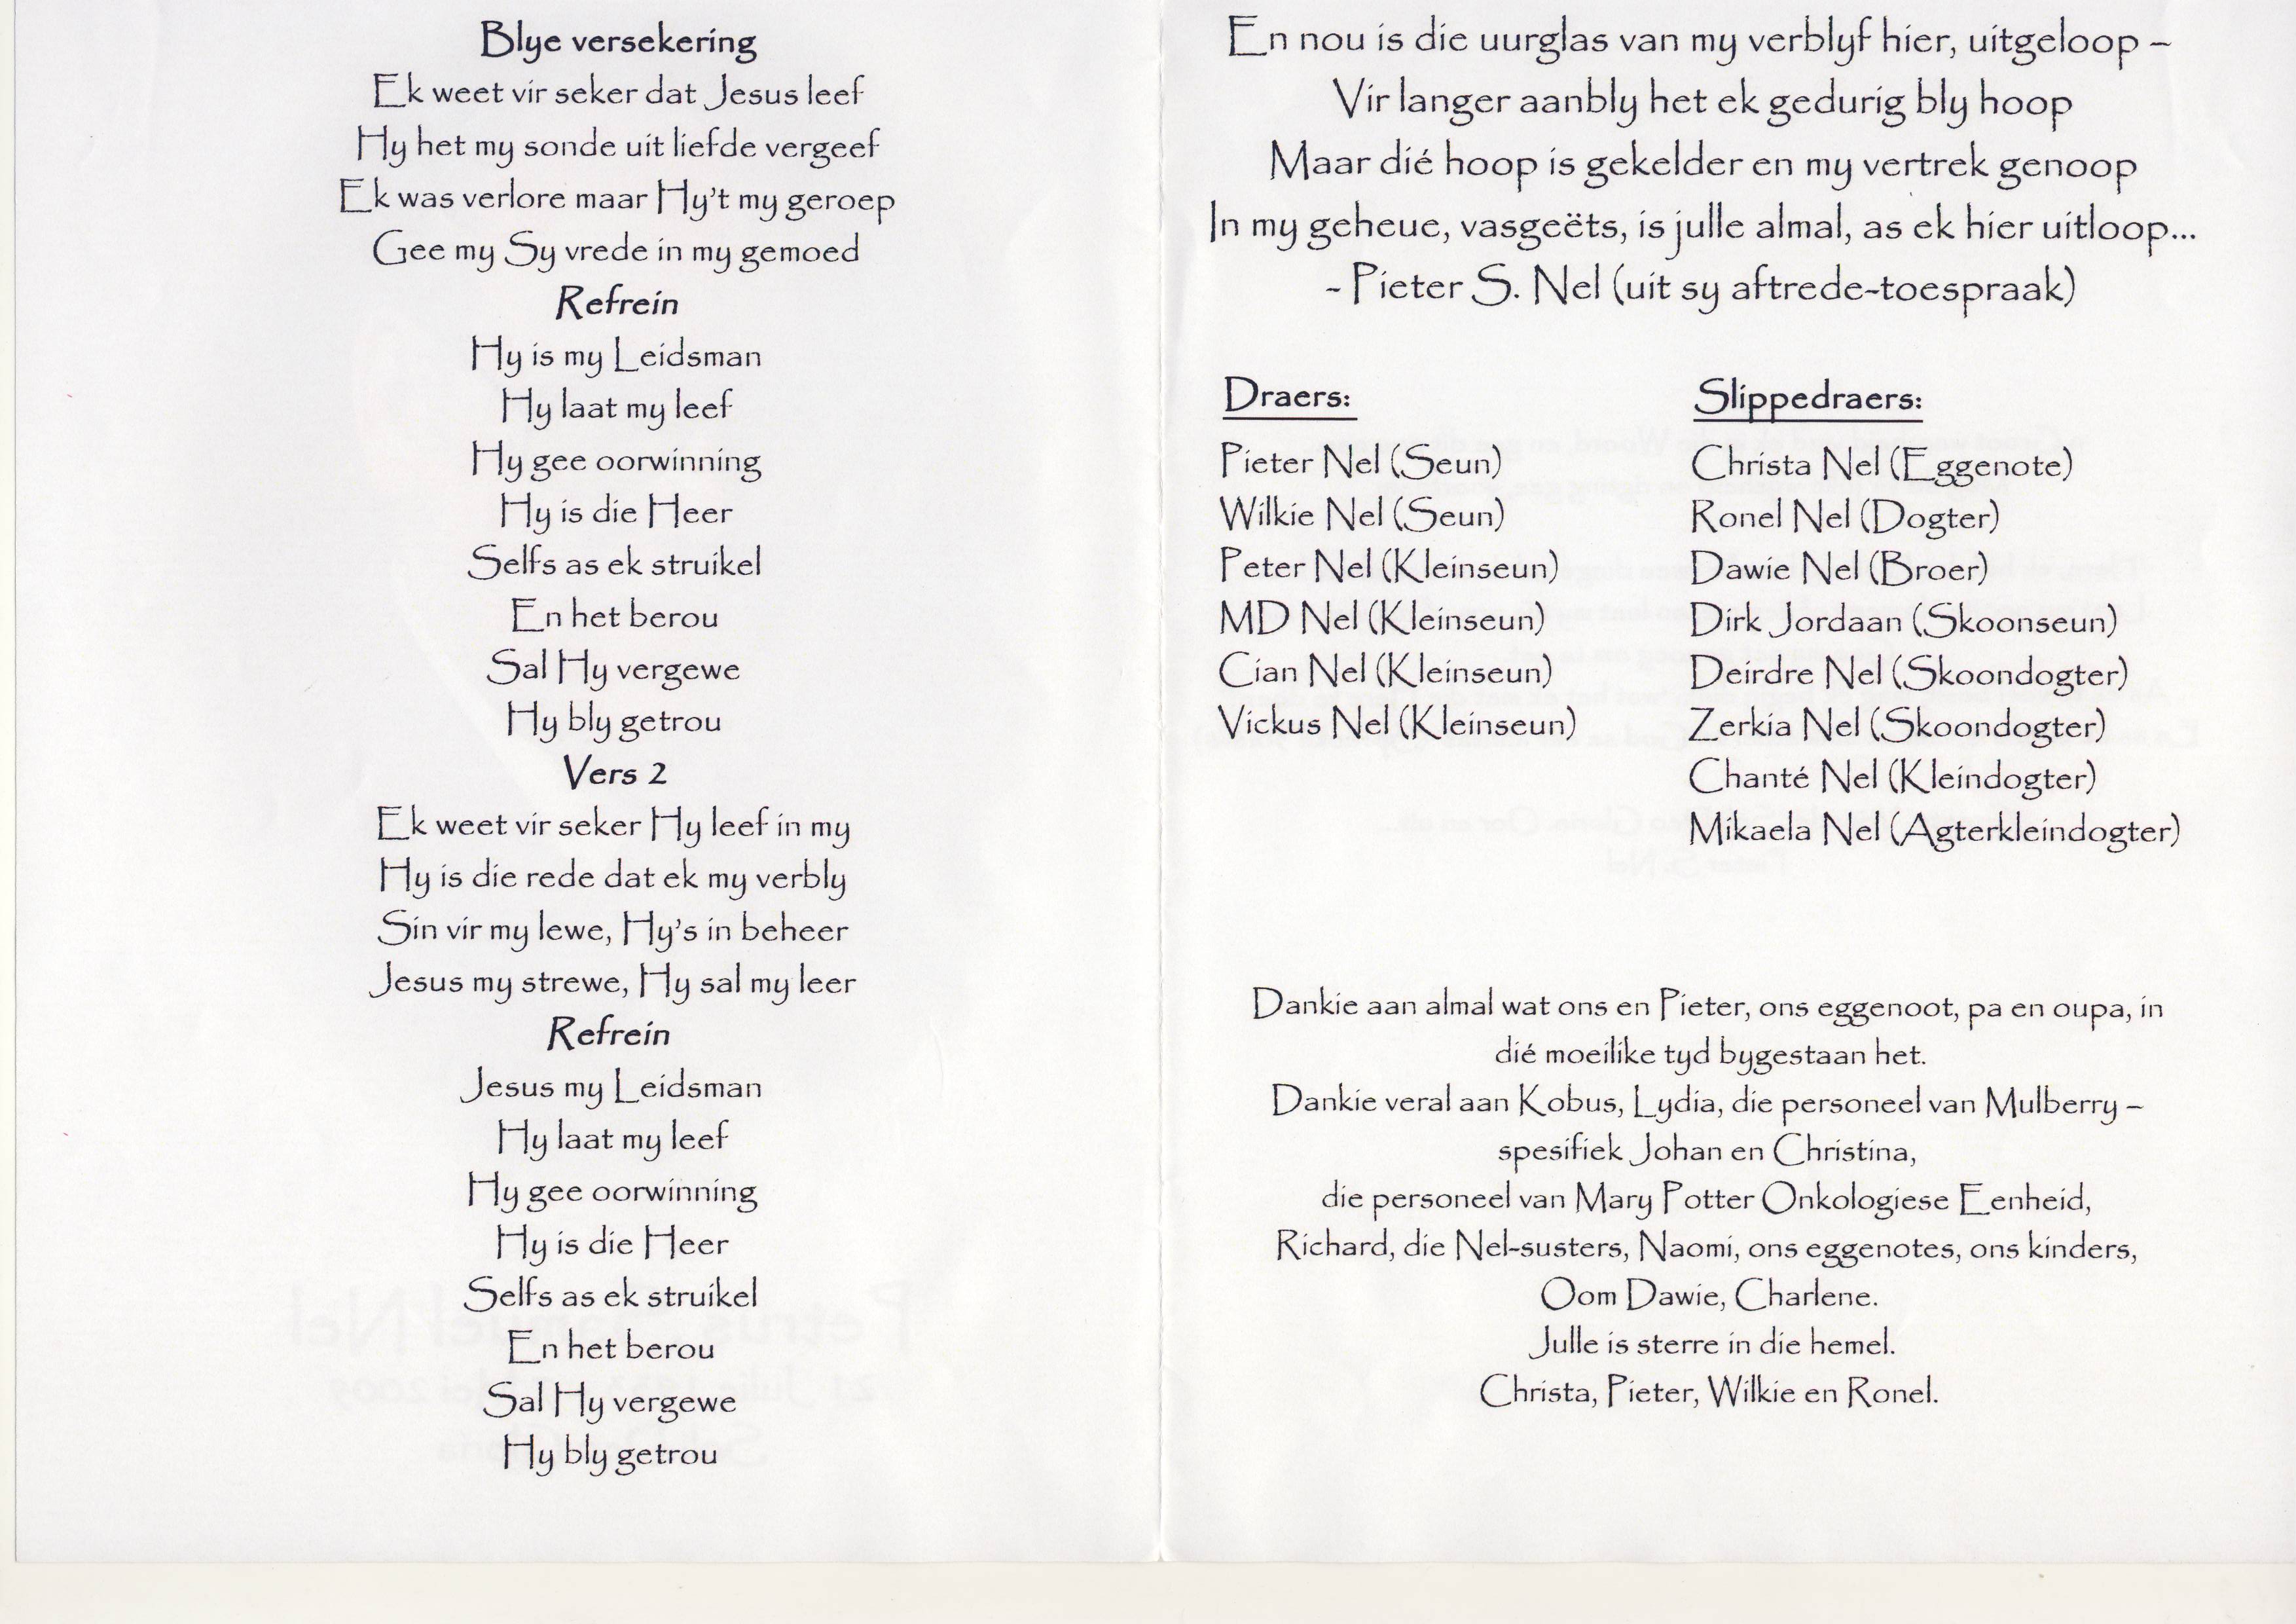 Blye versekering
Ek weet vir seker dat Jesus leef
Hy het my sonde uit liefde vergeef
Ek was verlore maar Hy't my geroep
Gee my Sy vrede in my gemoed
Refrein
Hy is my Leidsman
Hy laat my leef
Hy gee oorwinning
Hy is die Heer
Selfs as ek struikel
En het berou
Sal Hy vergewe
Hy bly getrou
Vers 2
Ek weet vir seker Hy leef in my
Hy is die rede dat ek my verbly
Sin vir my lewe, Hy's in beheer
Jesus my strewe, Hy sal my leer
Refrein
Jesus my Leidsman
Hy laat my leef
Hy gee oorwinning
Hy is die Heer
Selfs as ek struikel
En het berou
Sal Hy vergewe
Hy bly getrou
En nou is die uurglas van my verblyf hier, uitgeloop –
Vir langer aanbly het ek gedurig bly hoop
Maar dié hoop is gekelder en my vertrek genoop
In my geheue, vasgeëts, is julle almal, as ek hier uitloop...
- Pieter S. Nel (uit sy aftrede-toespraak)
Draers:
Pieter Nel (Seun)
Wilkie Nel (Seun)
Peter Nel (Kleinseun)
MD Nel (Kleinseun)
Cian Nel (Kleinseun)
Vickus Nel (Kleinseun)
Slippedraers:
Christa Nel (Eggenote)
Ronel Nel (Dogter)
Dawie Nel (Broer)
Dirk Jordaan (Skoonseun)
Deirdre Nel (Skoondogter)
Zerkia Nel (Skoondogter)
Chanté Nel (Kleindogter)
Mikaela Nel (Agterkleindogter)
Dankie aan almal wat ons en Pieter, ons eggenoot, pa en oupa, in
dié moeilike tyd bygestaan het.
Dankie veral aan Kobus, Lydia, die personeel van Mulberry –
spesifiek Johan en Christina,
die personeel van Mary Potter Onkologiese Eenheid,
Richard, die Nel-susters, Naomi, ons eggenotes, ons kinders,
Oom Dawie, Charlene.
Julle is sterre in die hemel.
Christa, Pieter, Wilkie en Ronel.